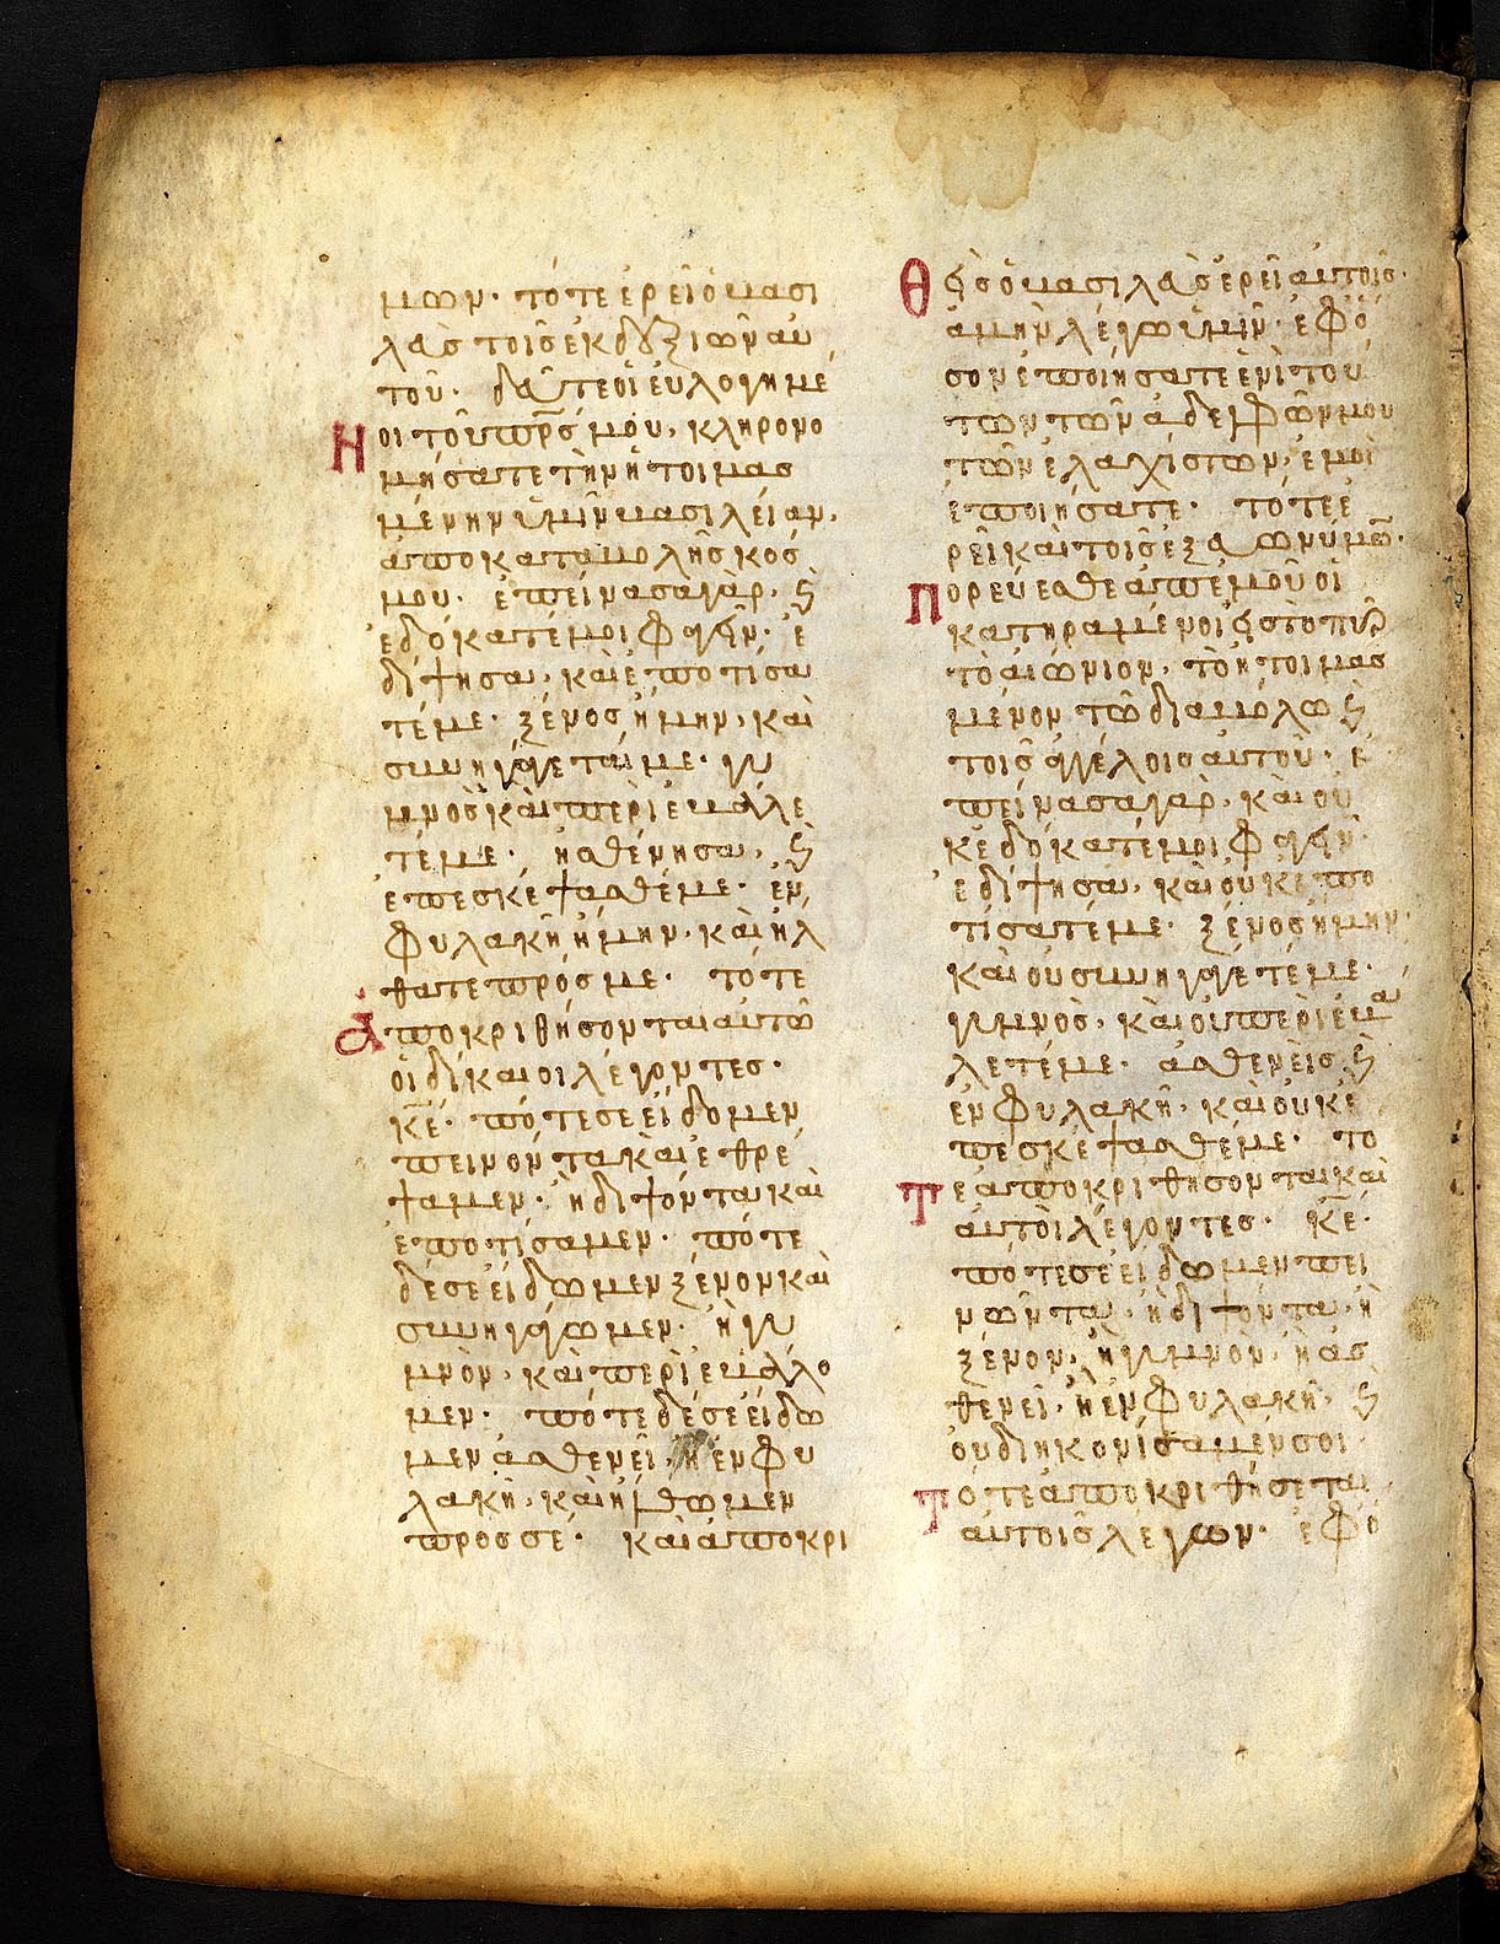 μων· τότε ἐρεῖ ὁ βασι
λεὺς τοῖς ἐκ δεξιῶν αὐ
τοῦ· δεῦτε οἱ εὐλογημέ
Νοι τοῦ πρς μου, κληρονο
μήσατε τὴν ἡτοιμασ
μένην ὑμῖν βασιλείαν,
ἀπὸ καταβολῆς κοσ
μου· ἐπείνασα γὰρ, ϗ
ἐδόκατέ μοι φαγεῖν· ἐ
δίψησα, καὶ ἐποτίσα
τέ με· ξένος ἤμην, καὶ
συνηγάγετέ με· γυ
μνὸς καὶ περιεβάλε
τέ με· ἠσθένησα, ϗ
ἐπεσκέψασθέ με· ἐν
φυλακῆ ἤμην, καὶ ἤλ
θατε πρός με· τότε
Ἀποκριθήσονται αὐτῶ
οἱ δίκαιοι λέγοντες·
κε· πότε σε εἴδομεν
πεινόντα καὶ ἐθρέ
ψαμεν· ἢ διψόντα καὶ
ἐποτίσαμεν· πότε
δέ σε εἴδωμεν ξένον καὶ
συνηγάγωμεν· ἢ γυ
μνὸν, καὶ περιεβάλο
μεν· πότε δέ σε εἴδω
μεν ἀσθενεῖ, ἢ ἐν φυ
λακῆ, καὶ ἤλθωμεν
πρός σε· καὶ ἀποκρι
Θεὶς ὁ βασιλεὺς ἐρεῖ αὐτοῖς·
ἀμὴν λέγω ὑμῖν· ἐφ ὅ
σον ἐποιήσατε ἑνὶ του
των τῶν ἀδελφῶν μου
τῶν ἐλαχίστων, ἐμοὶ
ἐποιήσατε· τότε ἐ
ρεῖ καὶ τοῖς ἐξ εὐωνύμω̄·
Πορεύεσθε ἀπ ἐμοῦ οἱ
κατηραμένοι εἰς τὸ πῦρ
τὸ αἰώνιον, τὸ ἡτοιμασ
μένον τῶ διαβόλω ϗ
τοῖς ἀγγέλοις αὐτοῦ· ἐ
πείνασα γὰρ, καὶ οὐ
κ ἐδόκατέ μοι φαγεῖν·
ἐδίψησα, καὶ οὐκ ἐπο
τίσατέ με· ξένος ἤμην
καὶ οὐ συνηγάγετέ με·
γυμνὸς, καὶ οὐ περιεβά
λετέ με· ἀσθενεὶς ϗ
ἐν φυλακῆ, καὶ οὐκ ἐ
πεσκέψασθέ με· τό
Τε ἀποκριθήσονται καὶ
αὐτοὶ λέγοντες· κε·
πότε σε εἴδωμεν πει
νῶντα, ἢ διψόντα, ἢ
ξένον, ἢ γυμνὸν, ἢ ἀσ
θενεῖ, ἢ ἐν φυλακῆ, ϗ
οὐ διηκονίσαμέν σοι·
Τότε ἀποκριθήσεται
αὐτοῖς λέγων· ἐφ ὅ